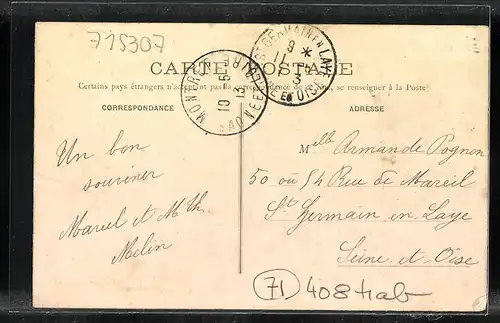 715307
CARTE POSTALE
Certains pays étrangers n'acceptent pas la correspondance de ce côté, se renseigner à la Poste
CORRESPONDANCE
ADRESSE
ST GERMAIN EN LAYE
SEINE ET OISE
Un bon
souvenir
Marcel et M Th.
Melin
Melle Armande Pognon
50 ou 54 Rue de Mareil
St Germain en Laye
Seine-et-Oise
71 408 trab